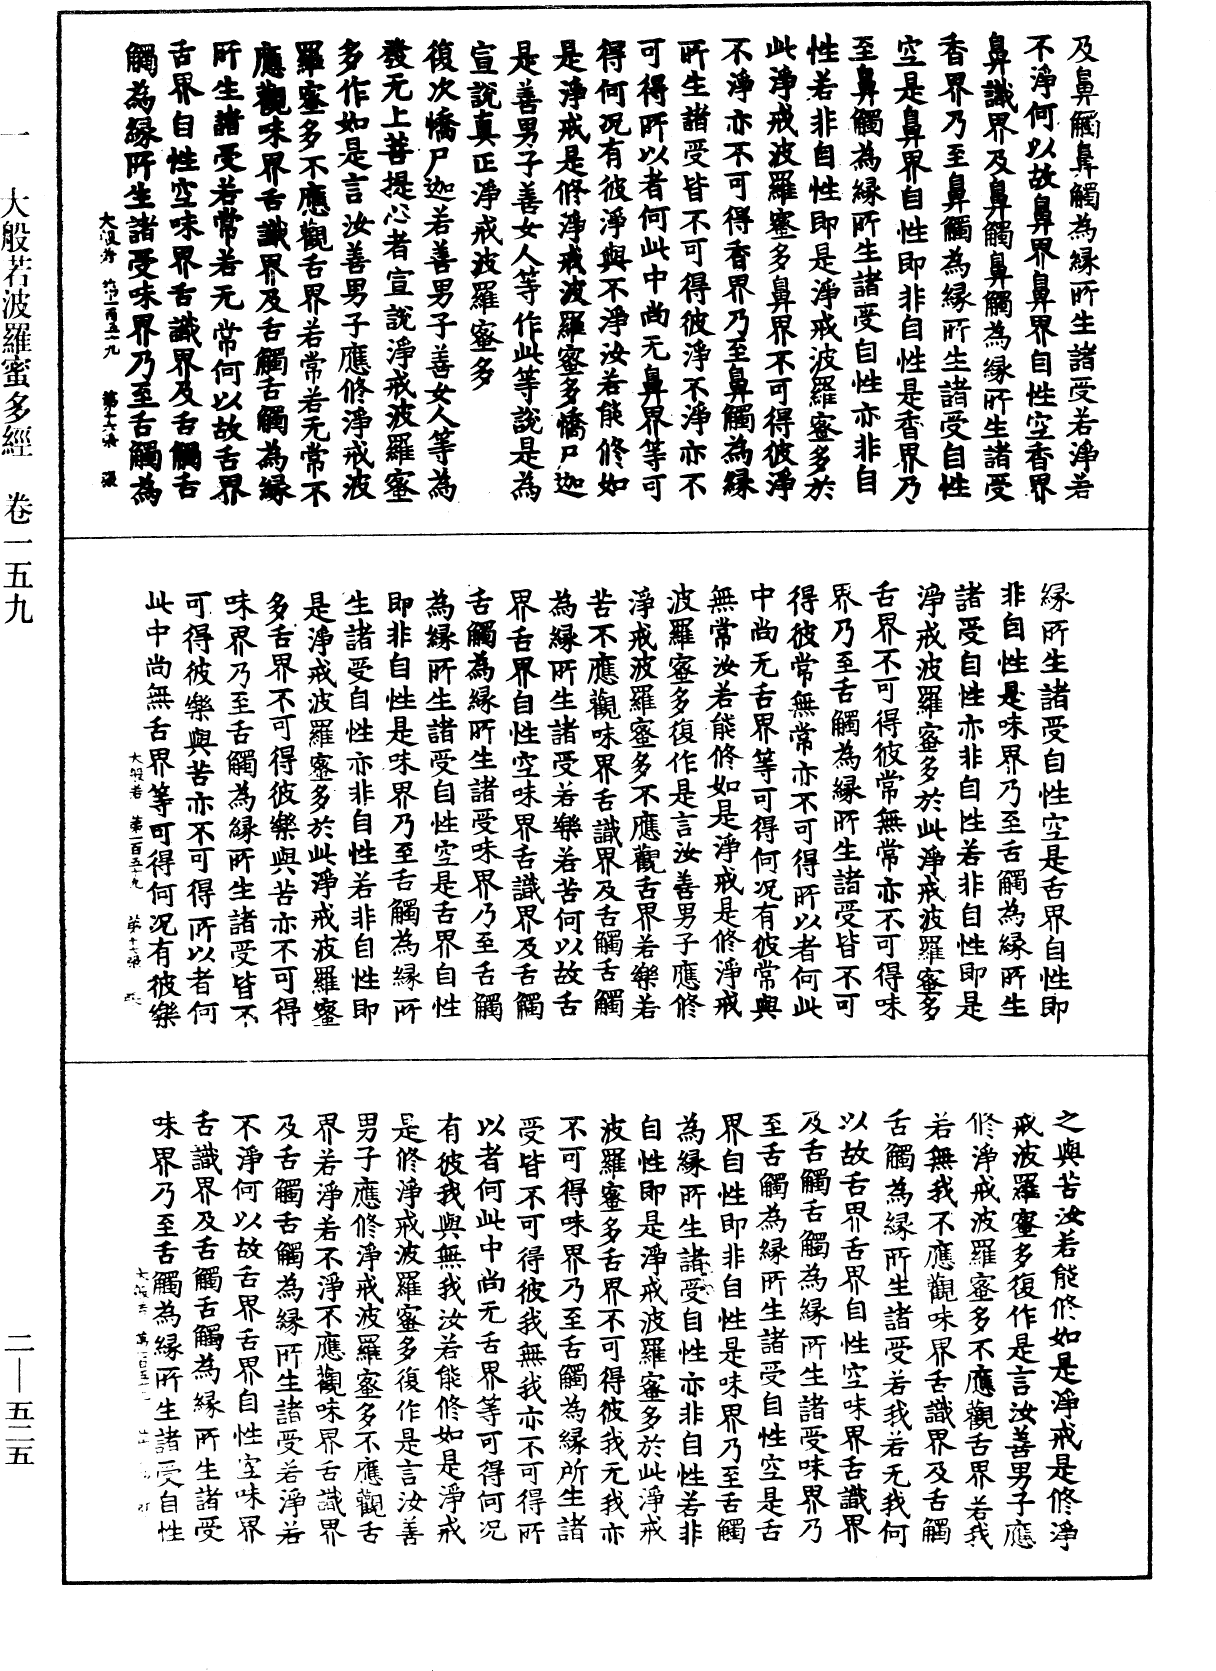 及鼻觸鼻觸為緣所生諸受若淨若
不淨何以故鼻界鼻界自性空香界
鼻識界及鼻觸鼻觸為緣所生諸受
香界乃至鼻觸為緣所生諸受自性
空是鼻界自性即非自性是香界乃
至鼻觸為緣所生諸受自性亦非自
性若非自性即是淨戒波羅蜜多於
此淨戒波羅蜜多鼻界不可得彼淨
不淨亦不可得香界乃至鼻觸為緣
所生諸受皆不可得彼淨不淨亦不
可得所以者何此中尚无鼻界等可
得何況有彼淨與不淨汝若能修如
是淨戒是修淨戒波羅蜜多憍尸迦
是善男子善女人等作此等說是為
宣說真正淨戒波羅蜜多
復次憍尸迦若善男子善女人等為
發无上菩提心者宣說淨戒波羅蜜
多作如是言汝善男子應修淨戒波
羅蜜多不應觀舌界若常若无常不
應觀味界舌識界及舌觸舌觸為緣
所生諸受若常若无常何以故舌界
舌界自性空味界舌識界及舌觸舌
觸為緣所生諸受味界乃至舌觸為
大般若 第一百五十九 第十六張
緣所生諸受自性空是舌界自性即
非自性是味界乃至舌觸為緣所生
諸受自性亦非自性若非自性即是
淨戒波羅蜜多於此淨戒波羅蜜多
舌界不可得彼常無常亦不可得味
界乃至舌觸為緣所生諸受皆不可
得彼常無常亦不可得所以者何此
中尚无舌界等可得何況有彼常與
無常汝若能修如是淨戒是修淨戒
波羅蜜多復作是言汝善男子應修
淨戒波羅蜜多不應觀舌界若樂若
苦不應觀味界舌識界及舌觸舌觸
為緣所生諸受若樂若苦何以故舌
界舌界自性空味界舌識界及舌觸
舌觸為緣所生諸受味界乃至舌觸
為緣所生諸受自性空是舌界自性
即非自性是味界乃至舌觸為緣所
生諸受自性亦非自性若非自性即
是淨戒波羅蜜多於此淨戒波羅蜜
多舌界不可得彼樂與苦亦不可得
味界乃至舌觸為緣所生諸受皆不
可得彼樂與苦亦不可得所以者何
此中尚無舌界等可得何況有彼樂
大般若 第一百五十九 第十七張
之與苦汝若能修如是淨戒是修淨
戒波羅蜜多復作是言汝善男子應
修淨戒波羅蜜多不應觀舌界若我
若無我不應觀味界舌識界及舌觸
舌觸為緣所生諸受若我若无我何
以故舌界舌界自性空味界舌識界
及舌觸舌觸為緣所生諸受味界乃
至舌觸為緣所生諸受自性空是舌
界自性即非自性是味界乃至舌觸
為緣所生諸受自性亦非自性若非
自性即是淨戒波羅蜜多於此淨戒
波羅蜜多舌界不可得彼我无我亦
不可得味界乃至舌觸為緣所生諸
受皆不可得彼我無我亦不可得所
以者何此中尚无舌界等可得何況
有彼我與無我汝若能修如是淨戒
是修淨戒波羅蜜多復作是言汝善
男子應修淨戒波羅蜜多不應觀舌
界若淨若不淨不應觀味界舌識界
及舌觸舌觸為緣所生諸受若淨若
不淨何以故舌界舌界自性空味界
舌識界及舌觸舌觸為緣所生諸受
味界乃至舌觸為緣所生諸受自性
一 大般若波羅蜜多經 卷一五九
二—五二五